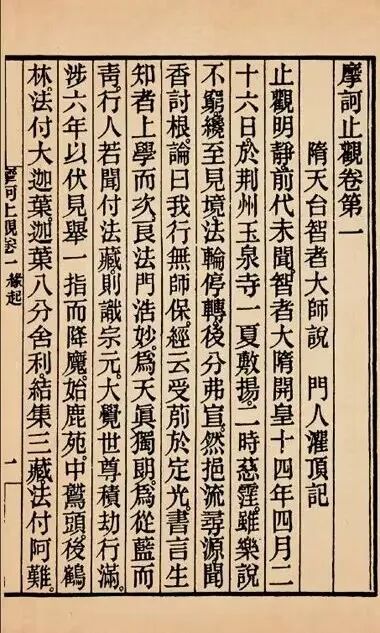 摩訶止觀卷第一
隋天台智者大師說　門人灌頂記
止觀明靜。前代未聞。智者大隋開皇十四年四月二
十六日。於荆州玉泉寺一夏敷揚。二時慈霔。雖樂說
不窮。纔至見境。法輪停轉。後分弗宣。然挹流尋源。聞
香討根。論曰。我行無師保。經云。受莂於定光。書言。生
知者上。學而次良。法門浩妙。爲天眞獨朗。爲從藍而
靑。行人若聞付法藏。則識宗元。大覺世尊積劫行滿。
涉六年以伏見。舉一指而降魔。始鹿苑。中鷲頭。後鶴
林。法付大迦葉。迦葉八分舍利。結集三藏。法付阿難。
摩訶止觀卷一　緣起　一